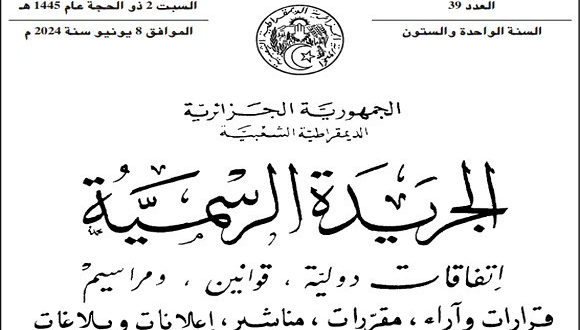 العدد 39
السنة الواحدة والستون
السبت 2 ذو الحجة عام 1445 هـ
الموافق 8 يونيو سنة 2024 م
الجمهورية الجزائرية
الديمقراطية الشعبية
الجريدة الرسمية
إتفاقات دولية ، قوانين ، ومراسيم
قرارات وآراء ، مقررات ، مناشير ، إعلانات وبلاغات